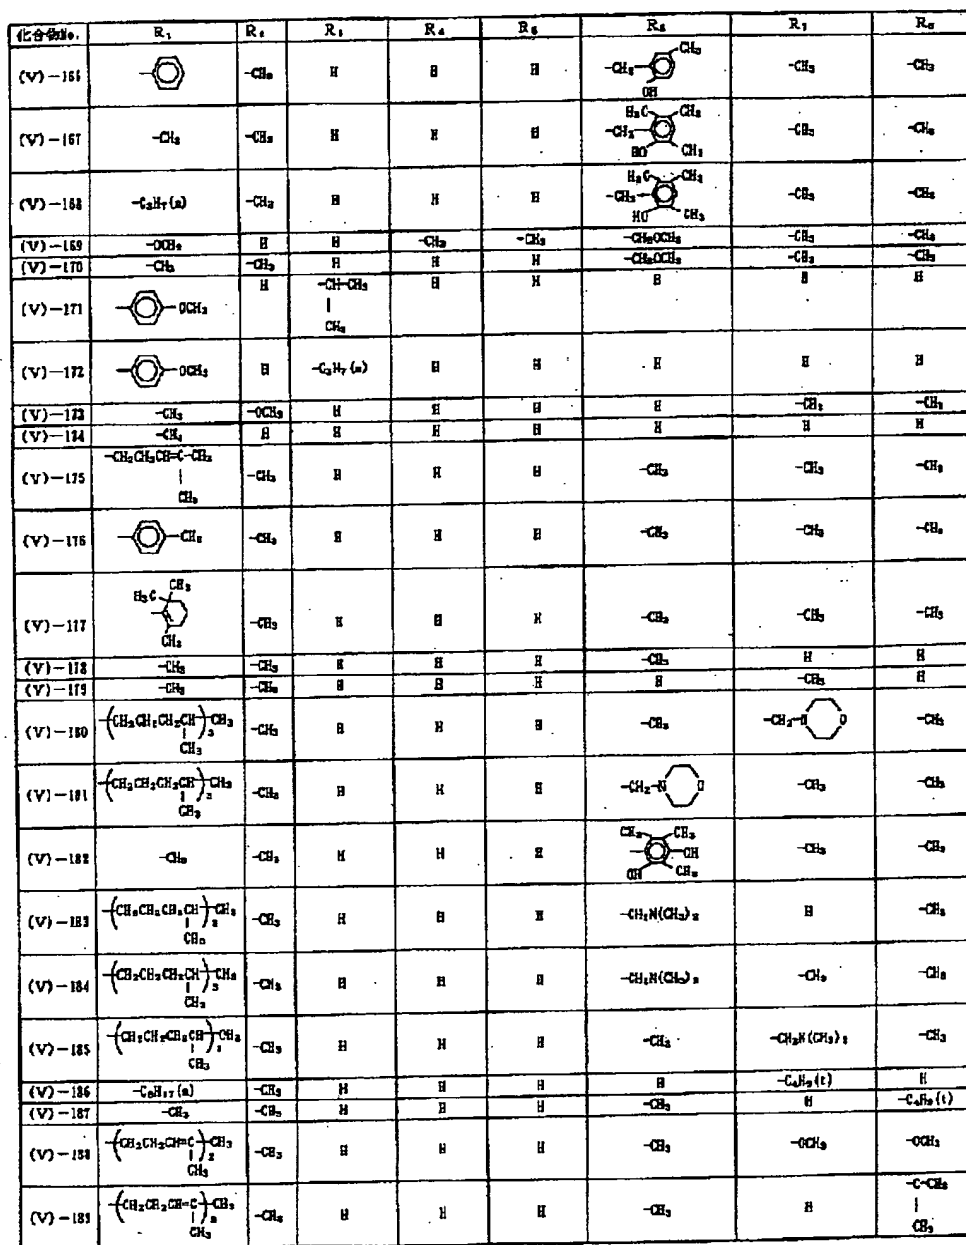 化合物No. R₁ R₂ R₃ R₄ R₅ R₆ R₇ R₈
(V)-166 -CH₃ H H H -CH₂ CH₃ OH -CH₃ -CH₃
(V)-167 -CH₃ -CH₃ H H H H₃C CH₃ -CH₂ HO CH₃ -CH₃ -CH₃
(V)-168 -C₃H₇(n) -CH₃ H H H H₃C CH₃ -CH₂ HO CH₃ -CH₃ -CH₃
(V)-169 -OCH₃ H H -CH₃ -CH₃ -CH₂OCH₃ -CH₃ -CH₃
(V)-170 -CH₃ -CH₃ H H H -CH₂OCH₃ -CH₃ -CH₃
(V)-171 -OCH₃ H -CH-CH₃ CH₃ H H H H H
(V)-172 -OCH₃ H -C₃H₇(n) H H H H H
(V)-173 -CH₃ -OCH₃ H H H H -CH₃ -CH₃
(V)-174 -CH₃ H H H H H H H
(V)-175 -CH₂CH₂CH=C-CH₃ CH₃ -CH₃ H H H -CH₃ -CH₃ -CH₃
(V)-176 -CH₃ -CH₃ H H H -CH₃ -CH₃ -CH₃
(V)-177 H₃C CH₃ CH₃ -CH₃ H H H -CH₃ -CH₃ -CH₃
(V)-178 -CH₃ -CH₃ H H H -CH₃ H H
(V)-179 -CH₃ -CH₃ H H H H -CH₃ H
(V)-180 -(CH₂CH₂CH₂CH)₃-CH₃ CH₃ -CH₃ H H H -CH₃ -CH₂-N O -CH₃
(V)-181 -(CH₂CH₂CH₂CH)₃-CH₃ CH₃ -CH₃ H H H -CH₂-N O -CH₃ -CH₃
(V)-182 -CH₃ -CH₃ H H H CH₃ CH₃ OH OH CH₃ -CH₃ -CH₃
(V)-183 -(CH₂CH₂CH₂CH)₃-CH₃ CH₃ -CH₃ H H H -CH₂N(CH₃)₂ H -CH₃
(V)-184 -(CH₂CH₂CH₂CH)₃-CH₃ CH₃ -CH₃ H H H -CH₂N(CH₃)₂ -CH₃ -CH₃
(V)-185 -(CH₂CH₂CH₂CH)₃-CH₃ CH₃ -CH₃ H H H -CH₃ -CH₂N(CH₃)₂ -CH₃
(V)-186 -C₈H₁₇(n) -CH₃ H H H H -C₄H₉(t) H
(V)-187 -CH₃ -CH₃ H H H -CH₃ H -C₄H₉(t)
(V)-188 -(CH₂CH₂CH=C)₂-CH₃ CH₃ -CH₃ H H H -CH₃ -OCH₃ -OCH₃
(V)-189 -(CH₂CH₂CH=C)-CH₃ CH₃ -CH₃ H H H -CH₃ H -C-CH₃ CH₃